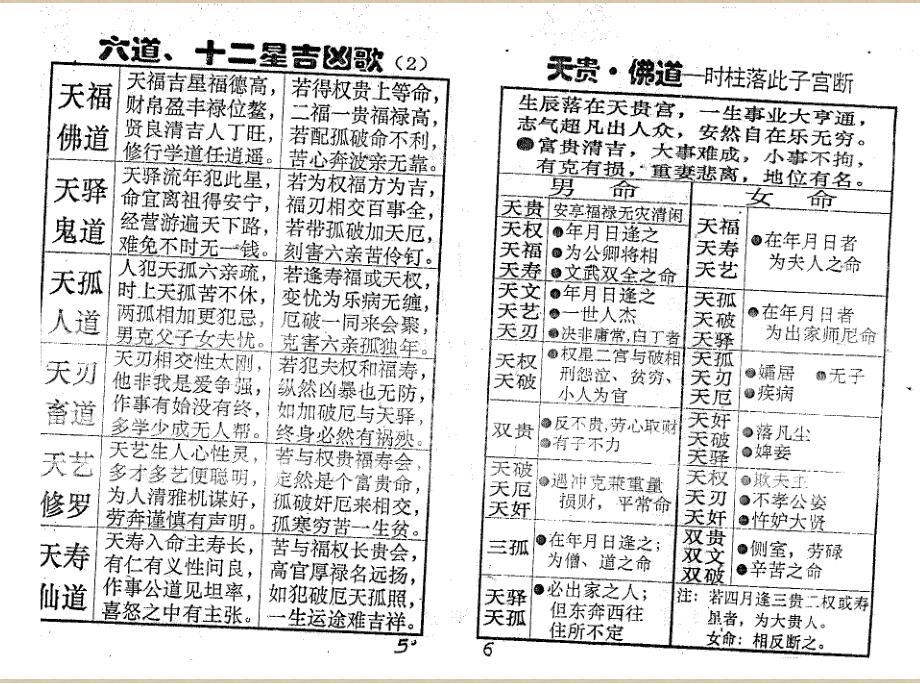 六道、十二星吉凶歌（2）
天福
佛道
天福吉星福德高，
财帛盈丰禄位鳌，
贤良清吉人丁旺，
修行学道任逍遥。
若得权贵上等命，
二福一贵福禄高，
若配孤破命不利，
苦心奔波亲无靠。
天驿
鬼道
天驿流年犯此星，
命宜离祖得安宁，
经营游遍天下路，
难免不时无一钱。
若为权福方为吉，
福刃相交百事全，
若带孤破加天厄，
刻害六亲苦伶仃。
天孤
人道
人犯天孤六亲疏，
时上天孤苦不休，
两孤相加更犯忌，
男克父子女夫忧。
若逢寿福或天权，
变忧为乐病无缠，
厄破一同来会聚，
克害六亲孤独年。
天刃
畜道
天刃相交性太刚，
他非我是爱争强，
作事有始没有终，
多学少成无人帮。
若犯夫权和福寿，
纵然凶暴也无防，
如加破厄与天驿，
终身必然有祸殃。
天艺
修罗
天艺生人心性灵，
多才多艺便聪明，
为人清雅机谋好，
劳奔谨慎有声明。
若与权贵福寿会，
定然是个富贵命，
孤破奸厄来相交，
孤寒穷苦一生贫。
天寿
仙道
天寿入命主寿长，
有仁有义性问良，
作事公道见坦率，
喜怒之中有主张。
苦与福权长贵会，
高官厚禄名远扬，
如犯破厄天孤照，
一生运途难吉祥。
5
天贵·佛道—时柱落此子宫断
生辰落在天贵宫，一生事业大亨通，
志气超凡出人众，安然自在乐无穷。
●富贵清吉，大事难成，小事不拘，
有克有损，重妻悲离，地位有名。
男命
天贵
安享福禄无灾清闲
天权
天福
天寿
●年月日逢之
●为公卿将相
●文武双全之命
天文
天艺
天刃
●年月日逢之
●一世人杰
●决非庸常，白丁者
天权
天破
●权星二宫与破相
刑怨泣、贫穷、
小人为官
双贵
●反不贵，劳心取财
●有子不力
天破
天厄
天奸
●遇冲克菜重量
损财，平常命
三孤
●在年月日逢之；
为僧、道之命
天驿
天孤
●必出家之人；
但东奔西往
住所不定
女命
天福
天寿
天艺
●在年月日者
为夫人之命
天孤
天破
天驿
●在年月日逢之
为出家师尼命
天孤
天刃
天厄
●孀居 ●无子
●疾病
天奸
天破
天驿
●落凡尘
●婢妾
天权
天刃
天奸
●欺夫主
●不孝公姿
●忤妒大贤
双贵
双文
双破
●侧室，劳碌
●辛苦之命
注：若四月逢三贵二权或寿
星者，为大贵人。
女命：相反断之。
6